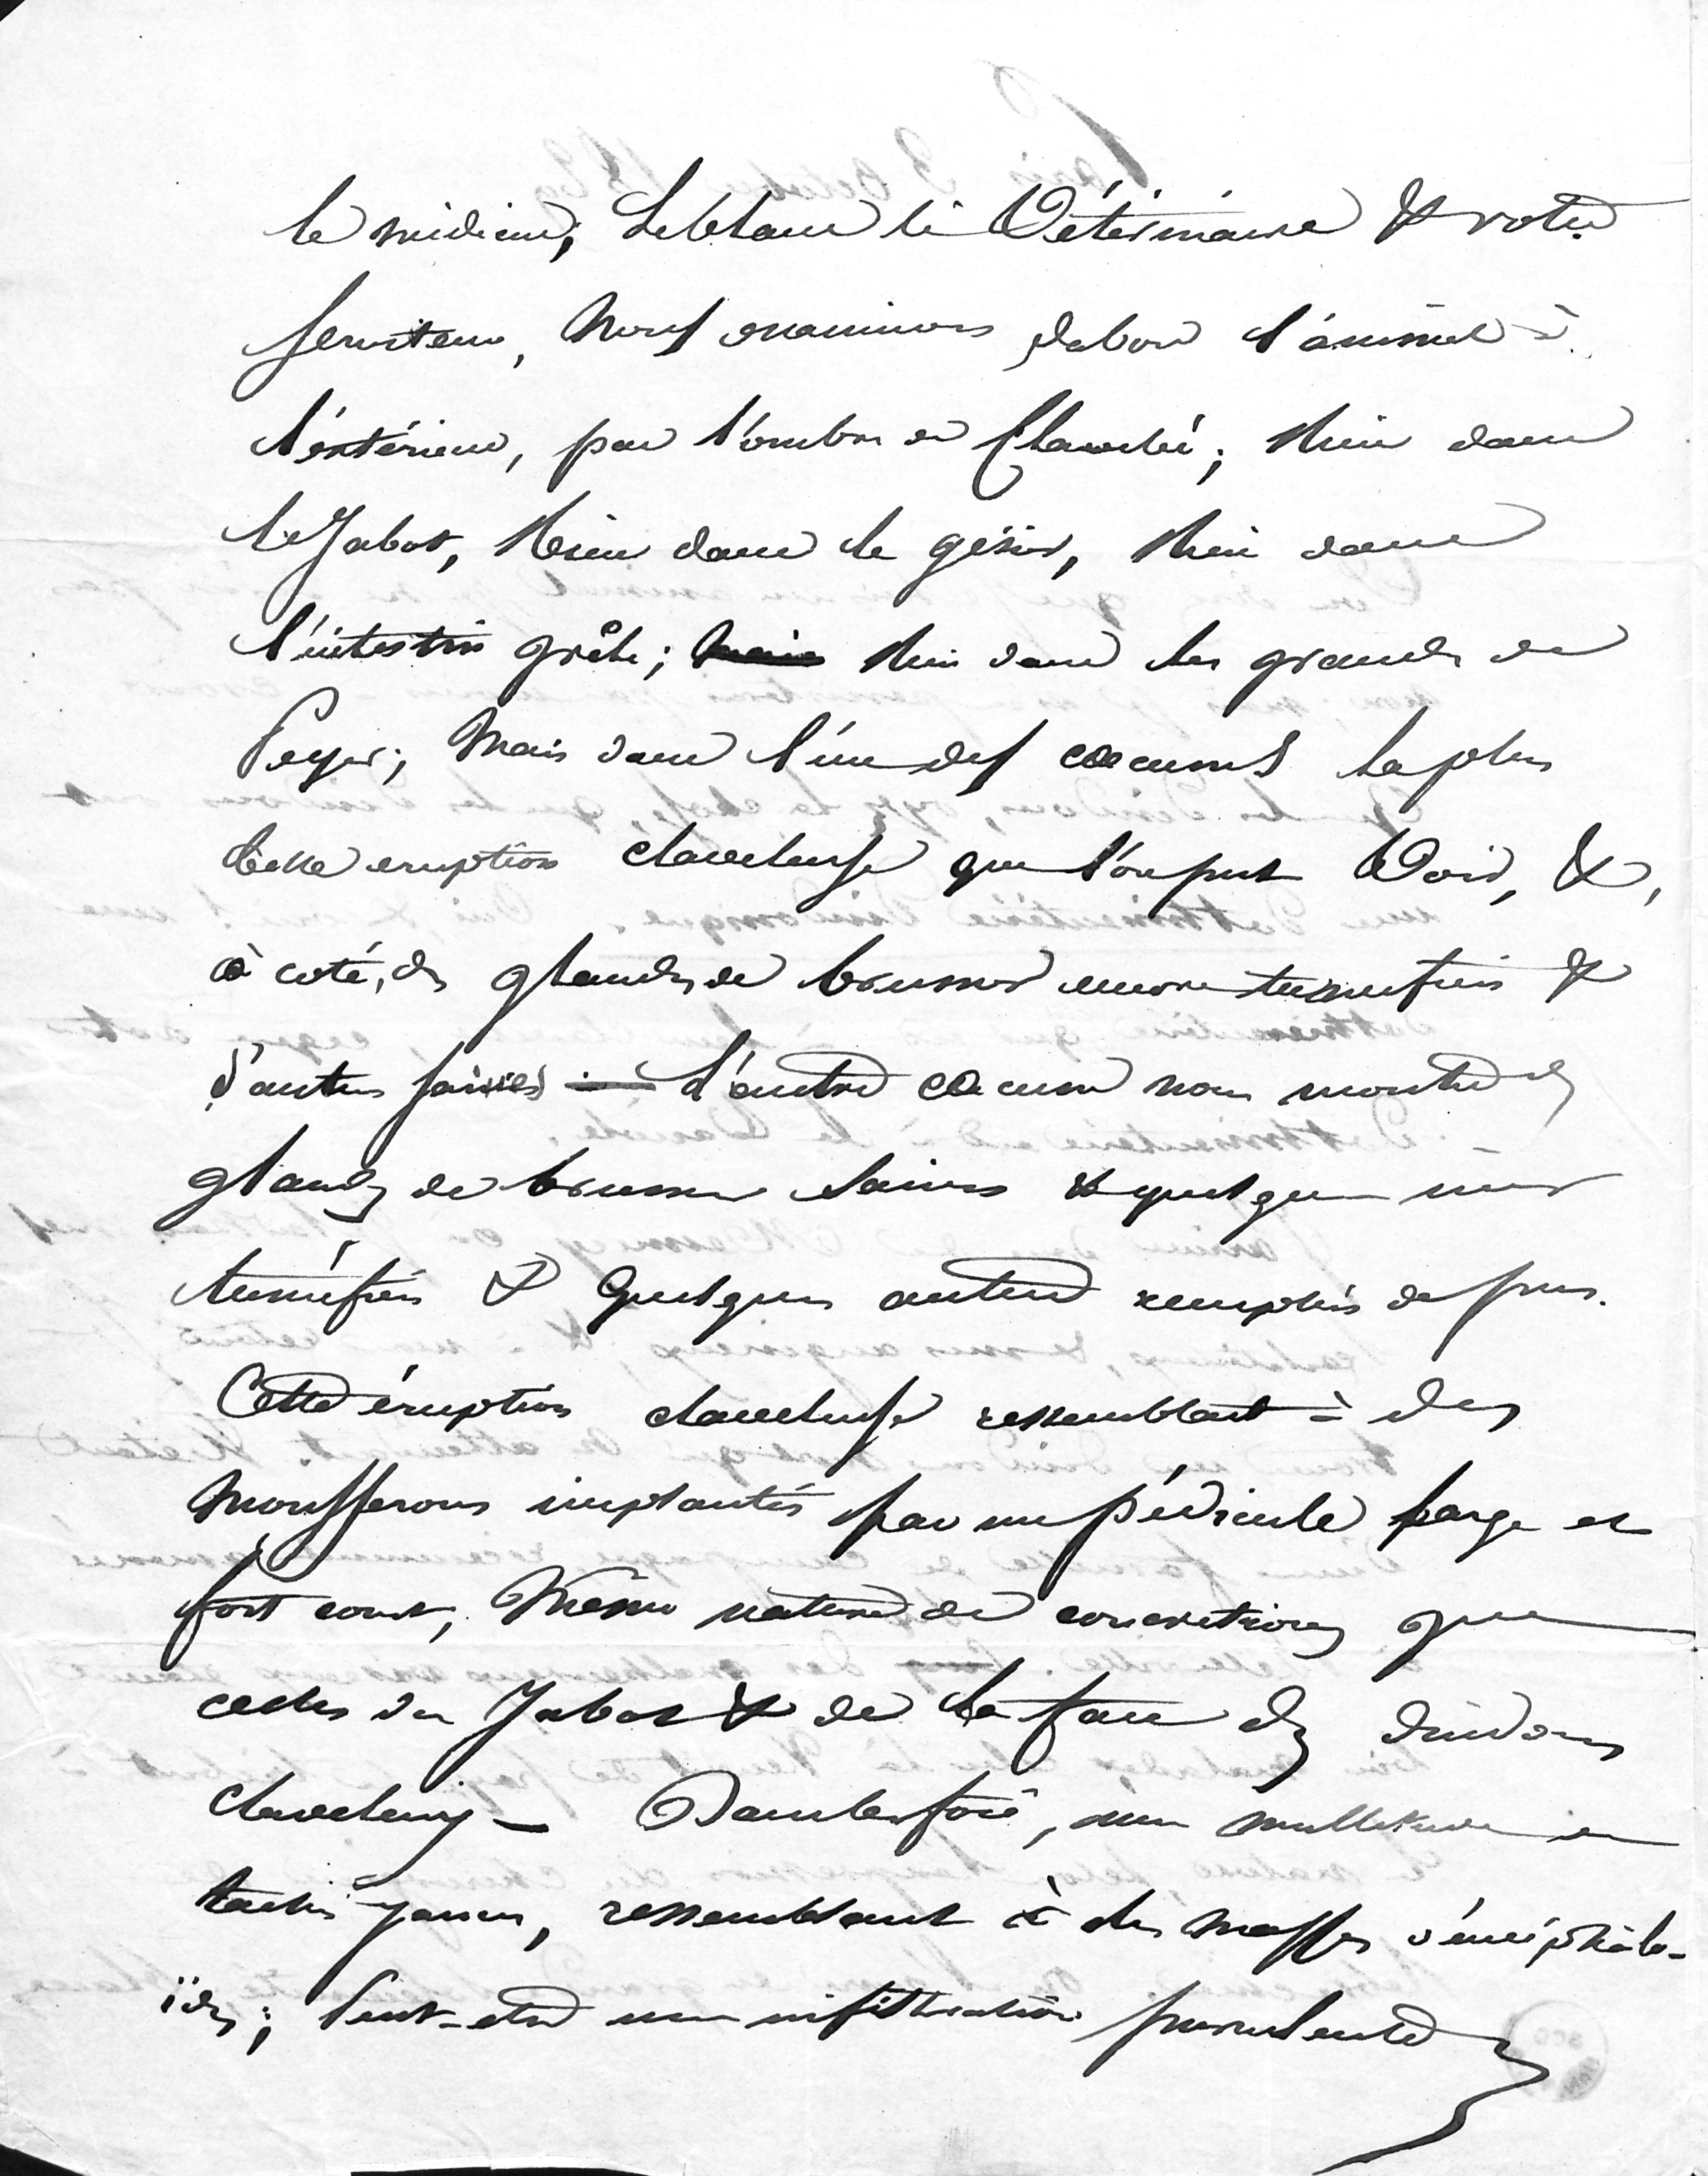 le médecin, Leblanc le Vétérinaire & votre
serviteur, Nous examinons dabord l'animal à
l'extérieur, pas l'ombre de Clavelée; Rien dans
le Jabot, Rien dans le gésier, Rien dans
l'intestin grêle; Rien dans les glandes de
Peyer; Mais dans l'un des cœcums la plus
belle eruption claveleuse que l'on put Voir, &,
à coté, des glandes de brunner encore tuméfiées &
d'autres saines — L'autre cœcum nous montre des
glandes de brunner saines & quelques unes
tuméfiées & quelques autres remplies de pus.
Cette éruption claveleuse ressemblant à des
Mousserons implantés par un pédicule large et
fort court, Même nature de concrétions que
celles du Jabot & de la face des dindons
claveleux — Dans le foie, une multitude de
taches jaunes, ressemblant à des masses d'encéphalo-
ïdes; Peut-etre une infiltration purulente